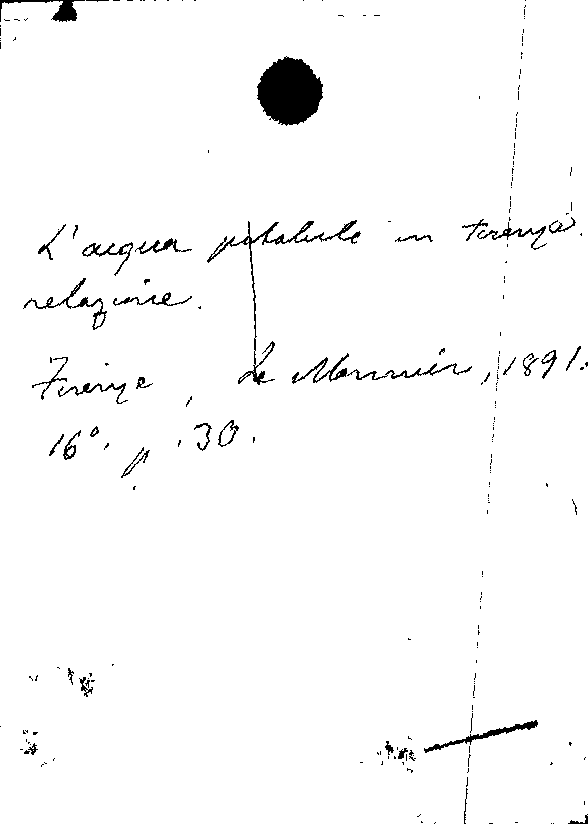 L'acqua potabile in Firenze.
relazione.
Firenze, Le Monnier, 1891.
16°. p. 30.